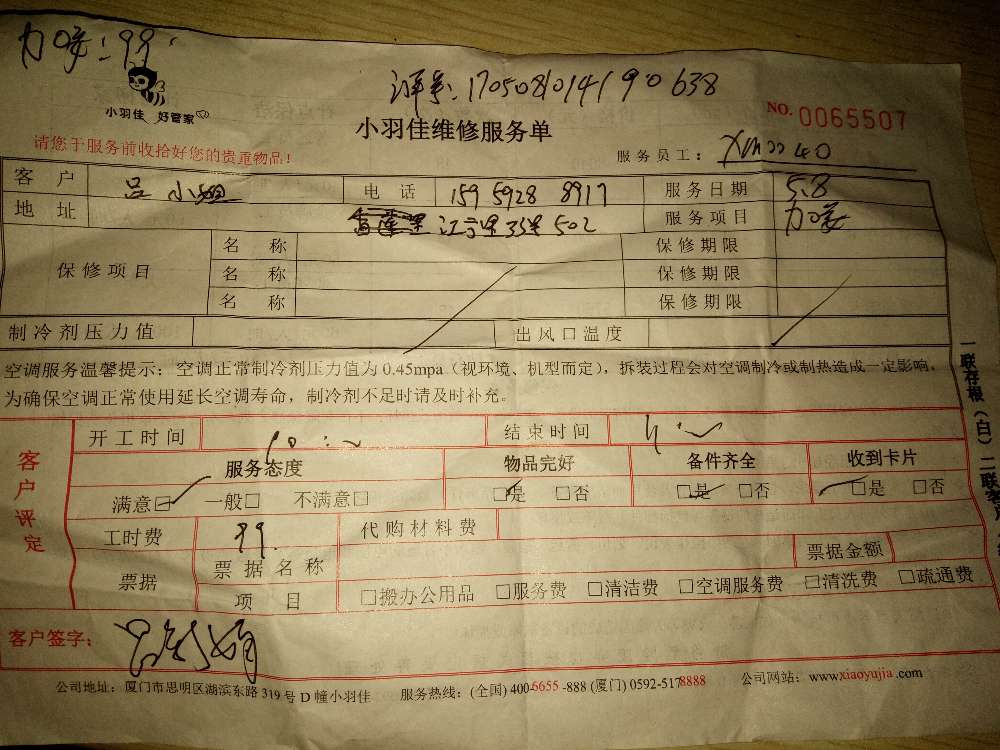 99.
单号:170508101419 0638
小羽佳 好管家
NO. 0065507
小羽佳维修服务单
请您于服务前收拾好您的贵重物品!
服务员工: Xm 40
客户 吕小姐 电话 159 5928 8917 服务日期 5.8
地址 502 服务项目
保修项目 名称 保修期限
名称 保修期限
名称 保修期限
制冷剂压力值 出风口温度
空调服务温馨提示:空调正常制冷剂压力值为 0.45mpa(视环境、机型而定),拆装过程会对空调制冷或制热造成一定影响,
为确保空调正常使用延长空调寿命,制冷剂不足时请及时补充。
客户评定
开工时间 结束时间
服务态度 物品完好 备件齐全 收到卡片
满意☑ 一般□ 不满意□ □是 □否 □是 □否 □是 □否
工时费 99. 代购材料费
票据 票据名称 票据金额
项目 □搬办公用品 □服务费 □清洁费 □空调服务费 □清洗费 □疏通费
客户签字:
公司地址:厦门市思明区湖滨东路 319 号 D 幢小羽佳 服务热线:(全国) 400-6655-888 (厦门) 0592-5178888 公司网站:www.xiaoyujia.com
一联存根(白)二联客